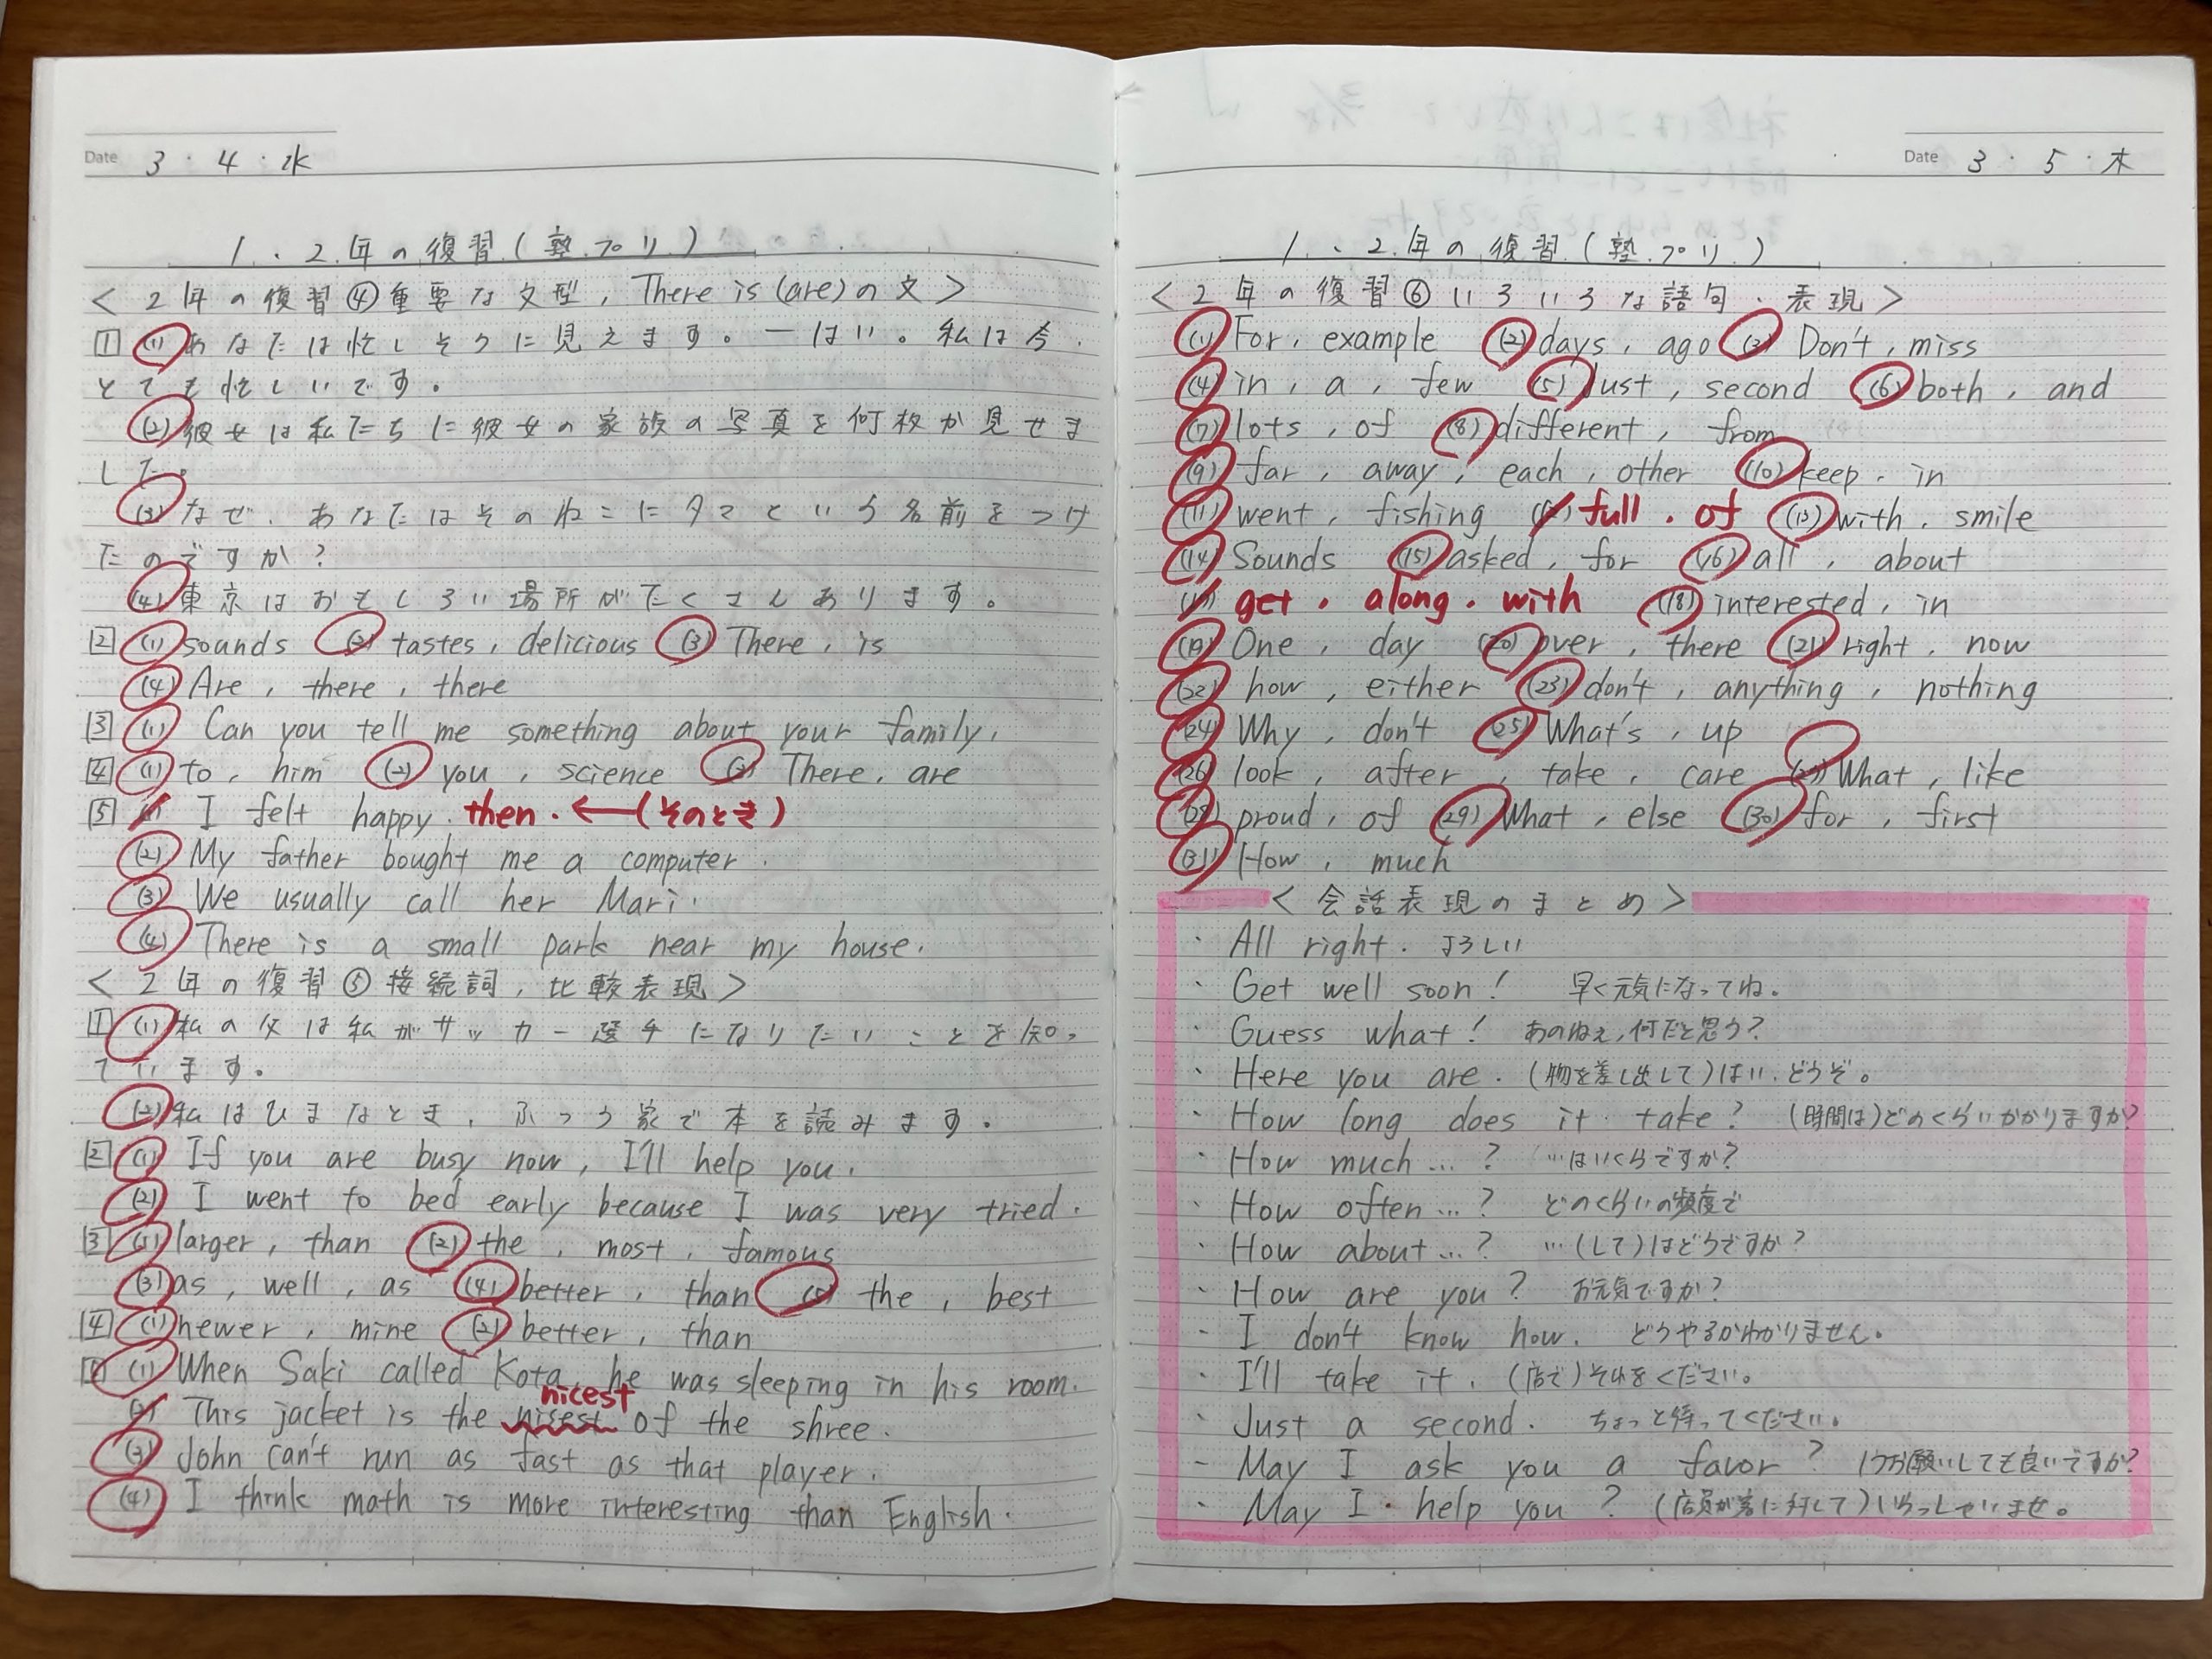 Date 3・4・水
1、2年の復習(塾プリ)
<2年の復習④重要な文型, There is (are)の文>
1 (1)あなたは忙しそうに見えます。―はい。私は今
とても忙しいです。
(2)彼女は私たちに彼女の家族の写真を何枚か見せま
した。
(3)なぜ、あなたはそのねこにタマという名前をつけ
たのですか?
(4)東京はおもしろい場所がたくさんあります。
2 (1) sounds (2) tastes, delicious (3) There, is
(4) Are, there, there
3 (1) Can you tell me something about your family,
4 (1) to, him (2) you, science (3) There, are
5 (1) I felt happy then. ←(そのとき)
(2) My father bought me a computer.
(3) We usually call her Mari.
(4) There is a small park near my house.
<2年の復習⑤接続詞, 比較表現>
1 (1)私の父は私がサッカー選手になりたいことを知っ
ています。
(2)私はひまなとき、ふつう家で本を読みます。
2 (1) If you are busy now, I'll help you.
(2) I went to bed early because I was very tried.
3 (1) larger, than (2) the, most, famous
(3) as, well, as (4) better, than (5) the, best
4 (1) newer, mine (2) better, than
(1) When Saki called Kota, he was sleeping in his room.
nicest
(2) This jacket is the nisest of the shree.
(3) John can't run as fast as that player.
(4) I think math is more interesting than English.
Date 3・5・木
1、2年の復習(塾プリ)
<2年の復習⑥いろいろな語句・表現>
(1) For, example (2) days, ago (3) Don't, miss
(4) in, a, few (5) Just, second (6) both, and
(7) lots, of (8) different, from
(9) far, away, each, other (10) keep, in
(11) went, fishing (12) full, of (13) with, smile
(14) Sounds (15) asked, for (16) all, about
(17) get, along, with (18) interested, in
(19) One, day (20) over, there (21) right, now
(22) how, either (23) don't, anything, nothing
(24) Why, don't (25) What's, up
(26) look, after, take, care (27) What, like
(28) proud, of (29) What, else (30) for, first
(31) How, much
<会話表現のまとめ>
・All right. よろしい
・Get well soon! 早く元気になってね。
・Guess what! あのねぇ,何だと思う?
・Here you are. (物を差し出して)はい、どうぞ。
・How long does it take? (時間は)どのくらいかかりますか?
・How much…? …はいくらですか?
・How often…? どのくらいの頻度で
・How about…? …(して)はどうですか?
・How are you? お元気ですか?
・I don't know how. どうやるかわかりません。
・I'll take it. (店で)それをください。
・Just a second. ちょっと待ってください。
・May I ask you a favor? 1つお願いしても良いですか?
・May I help you? (店員が客に対して)いらっしゃいませ。